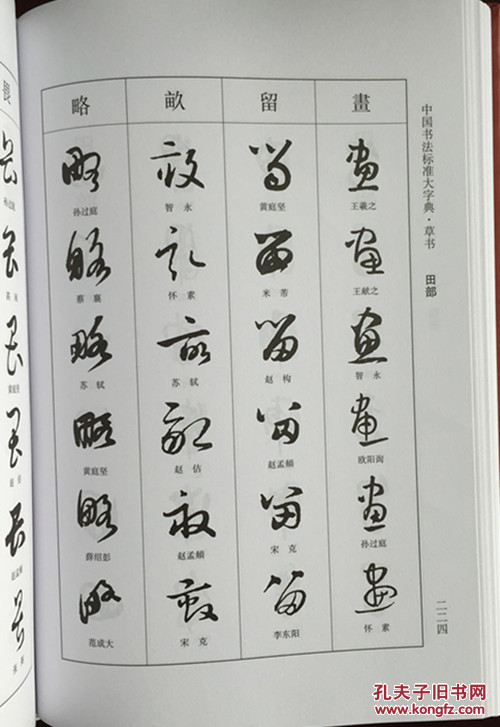 中国书法标准大字典·草书 田部
二二四
畫
王羲之
王献之
智永
欧阳询
孙过庭
怀素
留
黄庭坚
米芾
赵构
赵孟頫
宋克
李东阳
畝
智永
怀素
苏轼
赵佶
赵孟頫
宋克
略
孙过庭
蔡襄
苏轼
黄庭坚
薛绍彭
范成大
孙过庭
黄庭坚
赵孟頫
孔夫子旧书网
www.kongfz.com